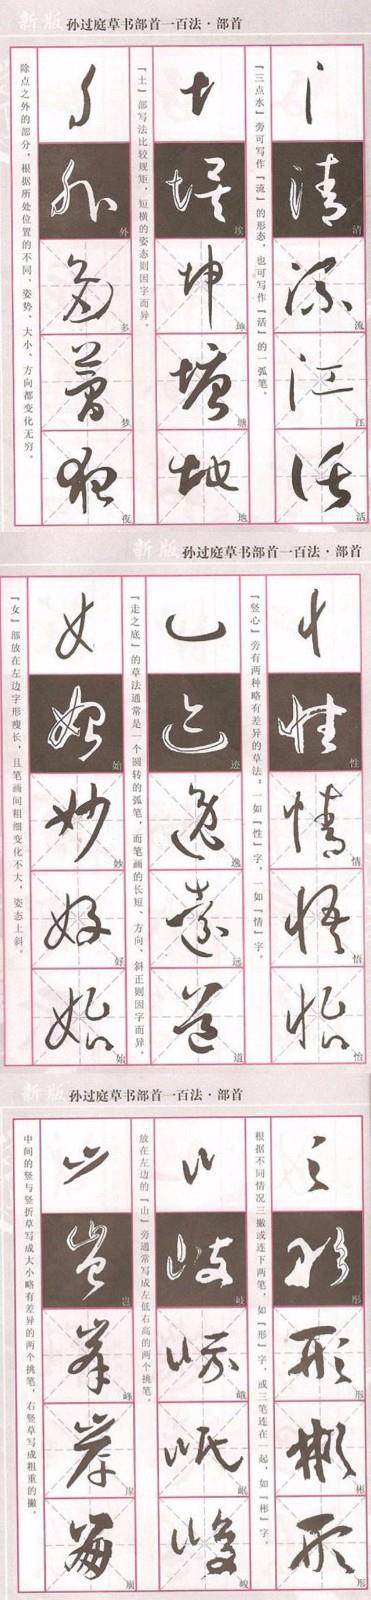 新版 孙过庭草书部首一百法·部首
『三点水』旁可写作『流』的形态，也可写作『活』的一弧笔。
清
流
江
活
『土』部写法比较规矩，短横的姿态则因字而异。
埃
坤
塘
地
除点之外的部分，根据所处位置的不同，姿势、大小、方向都变化无穷。
外
多
梦
夜
新版 孙过庭草书部首一百法·部首
『竖心』旁有两种略有差异的草法：一如『性』字，一如『情』字。
性
情
悟
怡
『走之底』的草法通常是一个圆转的弧笔，而笔画的长短、方向、斜正则因字而异。
迹
逸
远
道
『女』部放在左边字形瘦长，且笔画间粗细变化不大，姿态上斜。
始
妙
好
始
新版 孙过庭草书部首一百法·部首
根据不同情况三撇或连下两笔，如『形』字，或三笔连在一起，如『彬』字。
形
形
彬
形
放在左边的『山』旁通常写成左低右高的两个挑笔。
岐
峨
岷
峻
中间的竖与竖折草写成大小略有差异的两个挑笔，右竖草写成粗重的撇。
岂
峰
岸